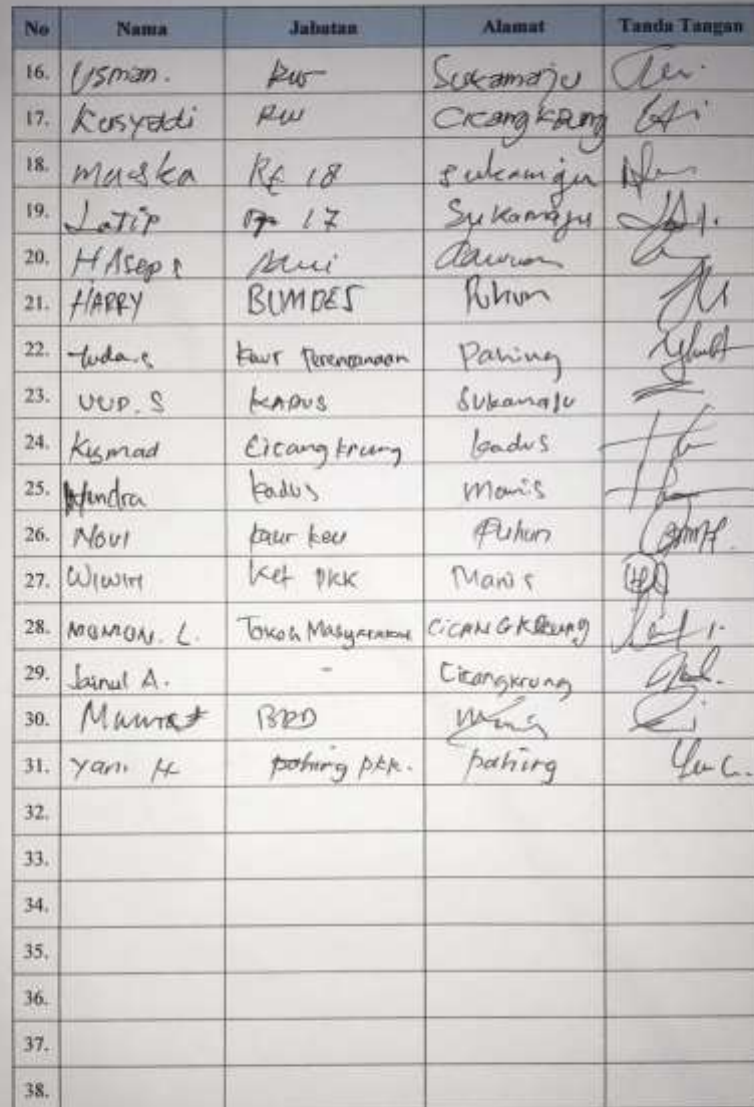 No Nama Jabatan Alamat Tanda Tangan
16. Usman. RW Sukamaju
17. Kusyadi RW Cicangkrung
18. Maeska Rt 18 Sukamaju
19. Latip 17 Sukamaju
20. H Asep
21. HARRY BUMDES Puhun
22. Yuda.s Kaur Perencanaan Pahing
23. UUP. S KADUS Sukamaju
24. Kusmad Cicangkrung kadus
25. Hendra kadus Manis
26. Novi kaur keu Puhun
27. Wiwin Ket PKK Manis
28. MOMON. L. Tokoh Masyarakat CICANGKRUNG
29. Jainul A. - Cicangkrung
30. BPD
31. Yani H pahing PKK. pahing
32.
33.
34.
35.
36.
37.
38.